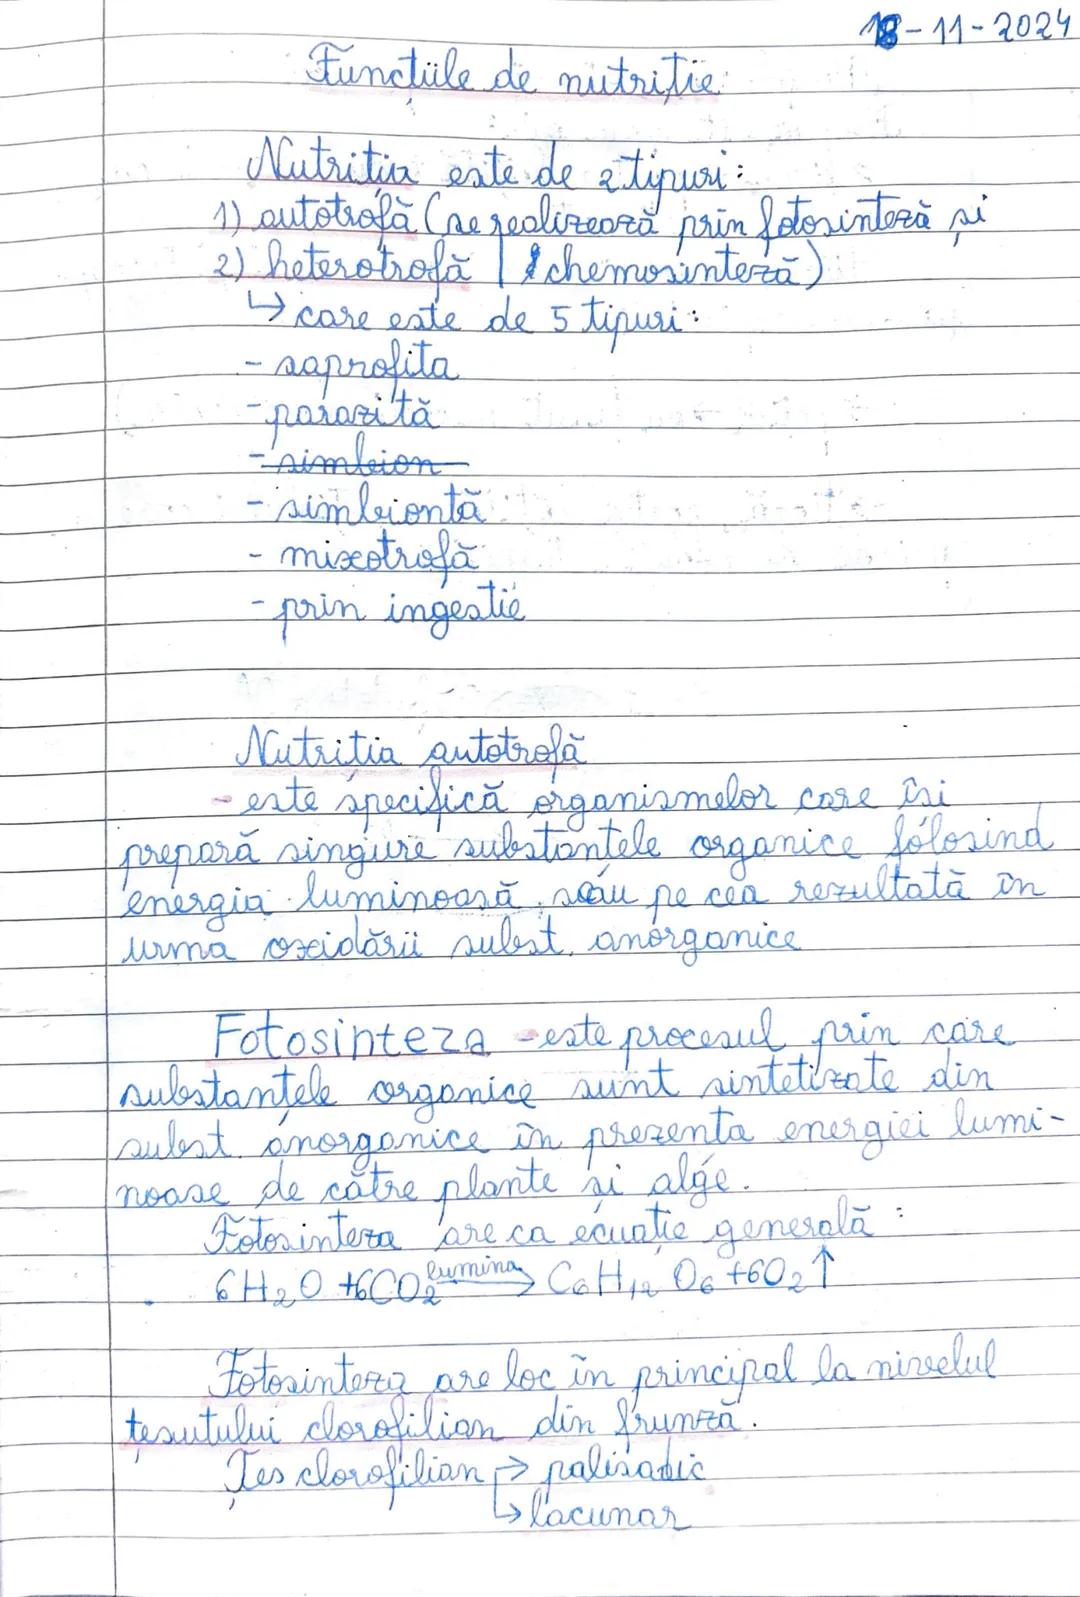 18-11-2024
Funcțiile de nutriție
Nutriția este de 2 tipuri:
1) autotrofă (se realizează prin fotosinteză și
2) heterotrofă | chemosinteză)
↳ care este de 5 tipuri:
- saprofita
- parazită
- simbion
- simbiontă
- mixotrofă
- prin ingestie
Nutritia autotrofă
- este specifică organismelor care își
prepară singure substanțele organice folosind
energia luminoasă sau pe cea rezultată în
urma oxidării subst. anorganice
Fotosinteza - este procesul prin care
substanțele organice sunt sintetizate din
subst. anorganice în prezenta energiei lumi-
noase de către plante și alge.
Fotosinteza are ca ecuație generală:
6H₂O + 6CO₂ lumina → C₆H₁₂O₆ + 6O₂↑
Fotosinteza are loc în principal la nivelul
țesutului clorofilian din frunză.
Țes clorofilian → palisadic
↳ lacunar